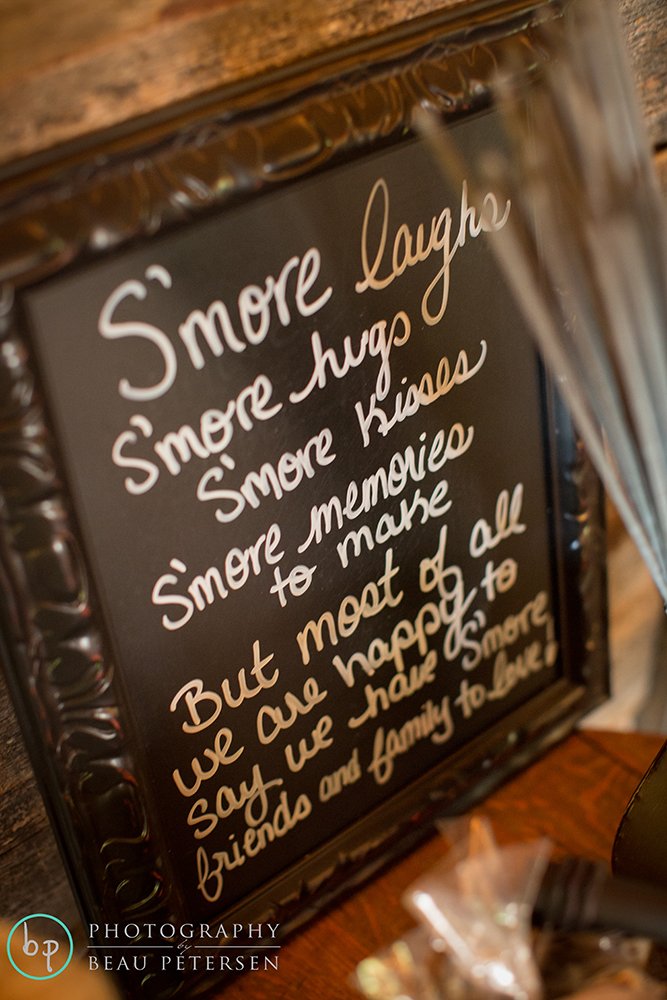 S'more laughs
S'more hugs
S'more Kisses
S'more memories
to make
But most of all
we are happy to
say we have S'more
friends and family to love!
bp PHOTOGRAPHY
by
BEAU PETERSEN